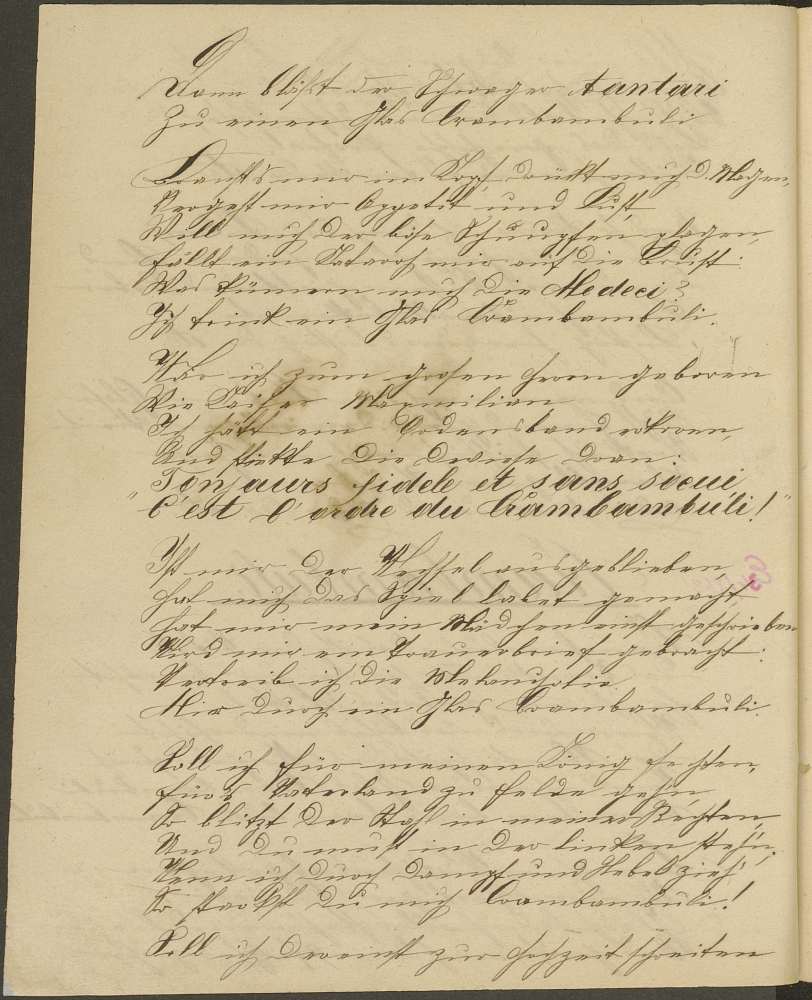 Dann bläßt der Schwager tantari
Zu einen Glas Crambambuli
Braust's mir im Kopf, drükt mich d. Magen,
Vergeht mir Appetit und Lust,
Will mich der böse Schnupfen plagen,
Fällt ein Katarrh mir auf die Brust:
Was kümmern mich die Medeci?
Ich trink ein Glas Crambambuli.
Wär ich zum grosen Herrn geboren
Wie Kaiser Maxmilian
Ich hätt ein Ordensband erkoren,
Und stekte die Deviese dran:
"Tonjaurs fidele et sans socui
C'est l'ordre du Crambambuli!"
Ist mir der Wechsel ausgeblieben,
Hat mich das Spiel labet gemacht,
Hat mir mein Mädchen einst geschrieben
Wird mir ein Trauerbrief gebracht:
Vertreib ich die Melancholie
Mir durch ein Glas Crambambuli.
Soll ich für meinen König fechten,
Fürs Vaterland zu Felde gehn,
So blitzt der Stahl in meiner Rechten,
Und du mußt in der linken steh'n,
Wenn ich durch Dampf und Nebel zieh'
So starkst du mich Crambambuli!
Soll ich dereinst zur Hochzeit schreiten